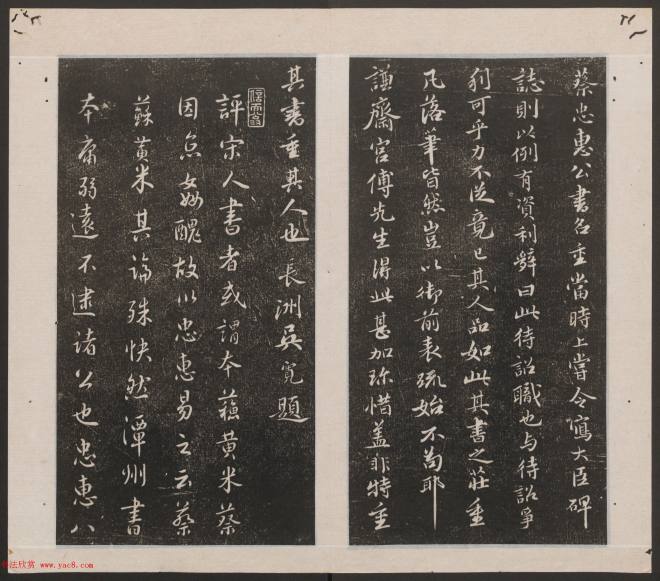 蔡忠惠公書名重當時上嘗令寫大臣碑
誌則以例有資利辭曰此待詔職也与待詔爭
利可乎力不從竟已其人品如此其書之莊重
凡落筆皆然豈以御前表疏始不苟耶
謙齋官傅先生得此甚加珍惜盖非特重
其書重其人也 長洲吳寬題
評宋人書者或謂本蘇黃米蔡
因京姦醜故以忠惠易之云蔡
蘇黃米其論殊快然潭州書
本弱遠不逮諸公也忠惠八
書法欣赏 www.yac8.com